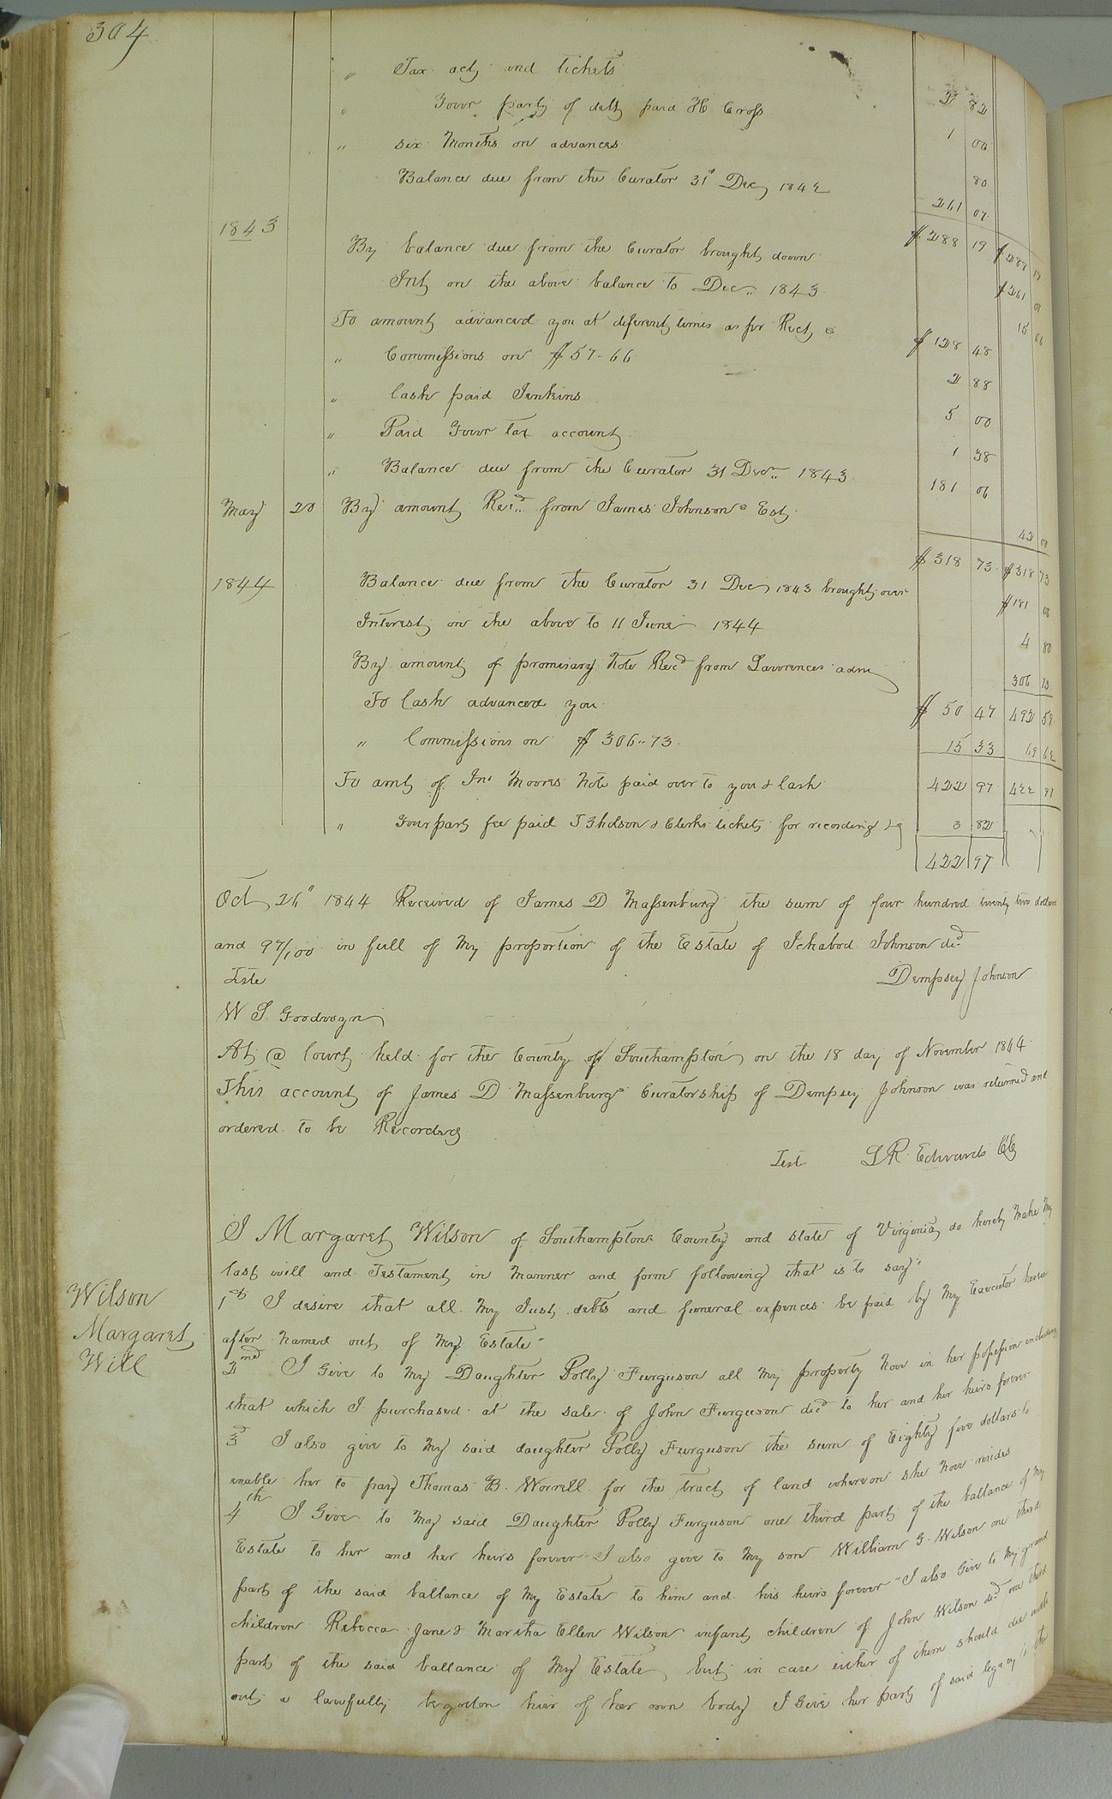 304
" Tax acct and tickets 2 82
" Your part of debt paid H Cross 1 00
" six Months on advances 80
Balance due from the Curator 31st Dec 1842 261 07
$288 19
1843 By balance due from the Curator brought down $261
Int on the above balance to Dec.. 1843
To amount advanced you at diferent times as per Rects $128 48
" Commissions on $57-66 2 88
" Cash paid Jenkins 5 00
" Paid Your tax account 1 38
" Balance due from the Curator 31 Decr.. 1843 181 06
May 20 By amount Recd.. from James Johnsons Est 42
$318 73 $318 73
1844 Balance due from the Curator 31 Dec 1843 brought over $181
Interest on the above to 11 June 1844 4 80
By amount of promisary Note Recd from Lawrences adm 306 73
To Cash advanced you $50 47 492 59
" Commissions on $306..73 15 33 69 62
To amt of Jno Moores Note paid over to you & Cash 422 97 422 97
" Your part fee paid & Clerks tickets for recording 3 82
422 97
Oct 26" 1844 Received of James D Massenburg the sum of four hundred twenty two dollars
and 97/100 in full of My proportion of the Estate of Ichabod Johnson decd
Teste Dempsey Johnson
W S Goodwyn
At @ Court held for the County of Southampton on the 18 day of November 1844
This account of James D Massenburgs Curatorship of Dempsey Johnson was returned and
ordered to be Recorded
Test L R Edwards CC
I Margaret Wilson of Southampton County and state of Virginia do hereby Make My
last will and Testament in Manner and form following that is to say
Wilson
Margaret
Will
1st I desire that all My Just debts and funeral expences be paid by My Executor herein
after named out of My Estate
2nd I Give to My Daughter Polly Furguson all My property Now in her possession including
that which I purchased at the sale of John Furguson decd to her and her heirs forever
3d I also give to My said daughter Polly Furguson the sum of Eighty five dollars to
enable her to pay Thomas B. Worrell for the tract of land whereon she Now resides
4th I Give to My said Daughter Polly Furguson one third part of the ballance of My
Estate to her and her heirs forever I also give to My son William G. Wilson one third
part of the said ballance of My Estate to him and his heirs forever I also Give to My grand
children Rebecca Jane & Martha Ellen Wilson infant children of John Wilson decd one third
part of the said ballance of My Estate but in case either of them should die with
out a lawfully begotten heir of her own body I Give her part of said legacy to the